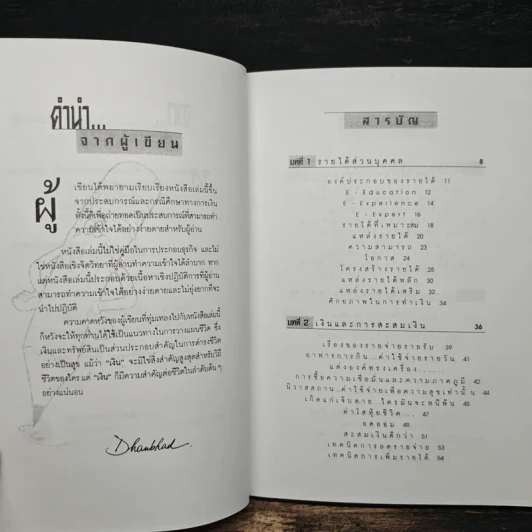 คำนำ...
จากผู้เขียน
ผู้เขียนได้พยายามเรียบเรียงหนังสือเล่มนี้ขึ้น
จากประสบการณ์และกรณีศึกษาทางการเงิน
ทั้งนี้ก็เพื่อถ่ายทอดเป็นประสบการณ์ที่สามารถทำ
ความเข้าใจได้อย่างง่ายดายสำหรับผู้อ่าน
หนังสือเล่มนี้ไม่ใช่คู่มือในการประกอบธุรกิจ และไม่
ใช่หนังสือเชิงจิตวิทยาที่ผู้อ่านทำความเข้าใจได้ลำบาก หาก
แต่หนังสือเล่มนี้ประกอบด้วยเนื้อหาเชิงปฏิบัติการที่ผู้อ่าน
สามารถทำความเข้าใจได้อย่างง่ายดายและไม่ยุ่งยากที่จะ
นำไปปฏิบัติ
ความคาดหวังของผู้เขียนที่ทุ่มเทลงไปกับหนังสือเล่มนี้
ก็หวังจะให้ทุกท่านได้ใช้เป็นแนวทางในการวางแผนชีวิต ซึ่ง
เงินและทรัพย์สินเป็นส่วนประกอบสำคัญในการดำรงชีวิต
อย่างเป็นสุข แม้ว่า "เงิน" จะมิใช่สิ่งสำคัญสูงสุดสำหรับวิถี
ชีวิตของใคร แต่ "เงิน" ก็มีความสำคัญต่อชีวิตในลำดับต้น ๆ
อย่างแน่นอน
Dhanbhad
สารบัญ
บทที่ 1 รายได้ส่วนบุคคล 8
องค์ประกอบของรายได้ 11
E - Education 12
E - Experience 14
E - Expert 16
รายได้ที่เหมาะสม 18
แหล่งรายได้ 20
ความสามารถ 23
โอกาส 24
โครงสร้างรายได้ 25
แหล่งรายได้หลัก 20
แหล่งรายได้เสริม 28
ศักยภาพในการทำเงิน 34
บทที่ 2 เงินและการสะสมเงิน 36
เรื่องของรายจ่ายรายรับ 39
อาหารการกิน...ค่าใช้จ่ายรายวัน 41
แต่งองค์ทรงเครื่อง...
การซื้อความเชื่อมั่นและความภาคภูมิ 42
นิวาสสถาน..ค่าใช้จ่ายเพื่อความสุขเท่านั้น 44
เกิดแก่เจ็บตาย...ใครมันจะหนีพ้น 46
ค่าโสหุ้ยชีวิต... 47
อดออม 49
สะสมเงินดีกว่า 51
เทคนิคการลดรายจ่าย 52
เทคนิคการเพิ่มรายได้ 54